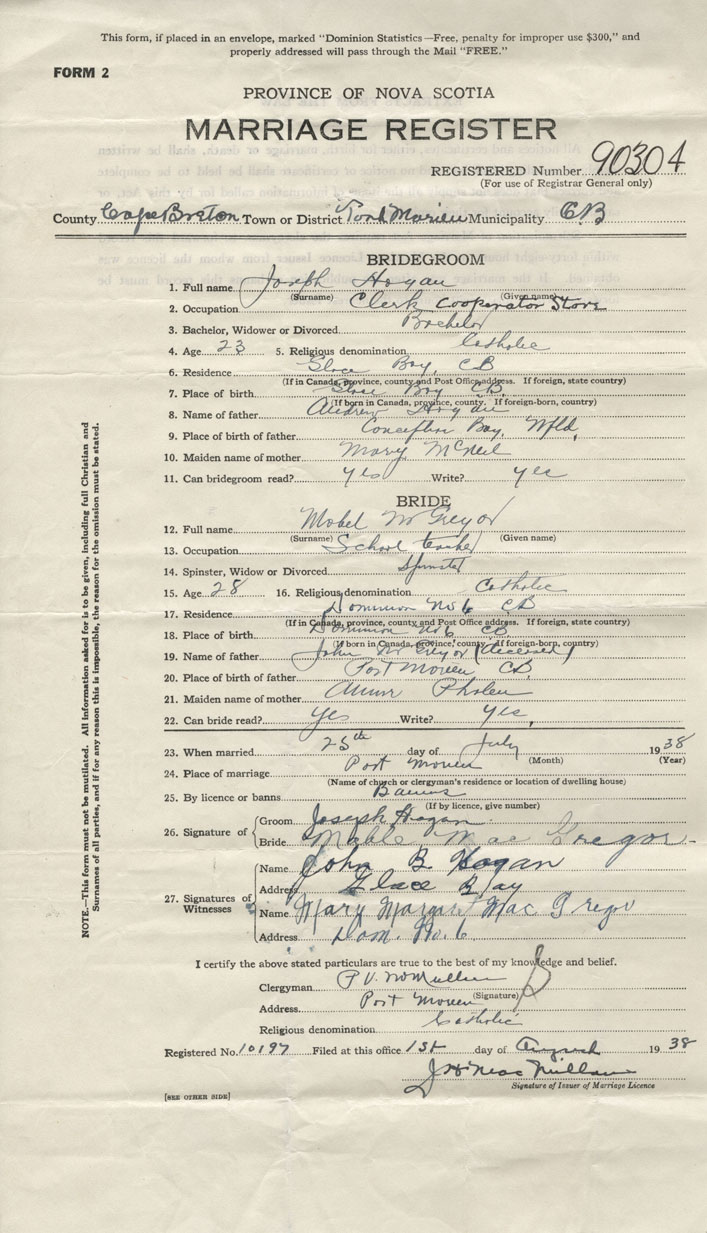 This form, if placed in an envelope, marked "Dominion Statistics—Free, penalty for improper use $300," and
properly addressed will pass through the Mail "FREE."
FORM 2
PROVINCE OF NOVA SCOTIA
MARRIAGE REGISTER
REGISTERED Number 90304
(For use of Registrar General only)
County Cape Breton Town or District Port Morien Municipality C.B
BRIDEGROOM
1. Full name Joseph Hogan
(Surname) (Given name)
2. Occupation Clerk Cooperator Store
3. Bachelor, Widower or Divorced Bachelor
4. Age 23 5. Religious denomination Catholic
6. Residence Glace Bay, CB
(If in Canada, province, county and Post Office address. If foreign, state country)
7. Place of birth Glace Bay CB
(If born in Canada, province, county. If foreign-born, country)
8. Name of father Andrew Hogan
9. Place of birth of father Conception Bay, Nfld,
10. Maiden name of mother Mary McNeil
11. Can bridegroom read? yes Write? yes
BRIDE
12. Full name Mabel McGregor
(Surname) (Given name)
13. Occupation School teacher
14. Spinster, Widow or Divorced Spinster
15. Age 28 16. Religious denomination Catholic
17. Residence Dominion No 6 CB
(If in Canada, province, county and Post Office address. If foreign, state country)
18. Place of birth Dominion No 6 CB
(If born in Canada, province, county. If foreign-born, country)
19. Name of father John McGregor (deceased)
20. Place of birth of father Port Morien CB
21. Maiden name of mother Phalen
22. Can bride read? yes Write? yes,
23. When married 25th day of July 1938
(Month) (Year)
24. Place of marriage Port Morien
(Name of church or clergyman's residence or location of dwelling house)
25. By licence or banns Banns
(If by licence, give number)
26. Signature of
Groom Joseph Hogan
Bride Mable Mac Gregor
27. Signatures of Witnesses
Name John B Hogan
Address Glace Bay
Name Mary Margaret Mac Gregor
Address Dom. No. 6
I certify the above stated particulars are true to the best of my knowledge and belief.
Clergyman P.V. McMullin
(Signature)
Address Port Morien
Religious denomination Catholic
Registered No. 10197 Filed at this office 1st day of August 1938
J H MacMillan
Signature of Issuer of Marriage Licence
[SEE OTHER SIDE]
NOTE.—This form must not be mutilated. All information asked for is to be given, including full Christian and
Surnames of all parties, and if for any reason this is impossible, the reason for the omission must be stated.